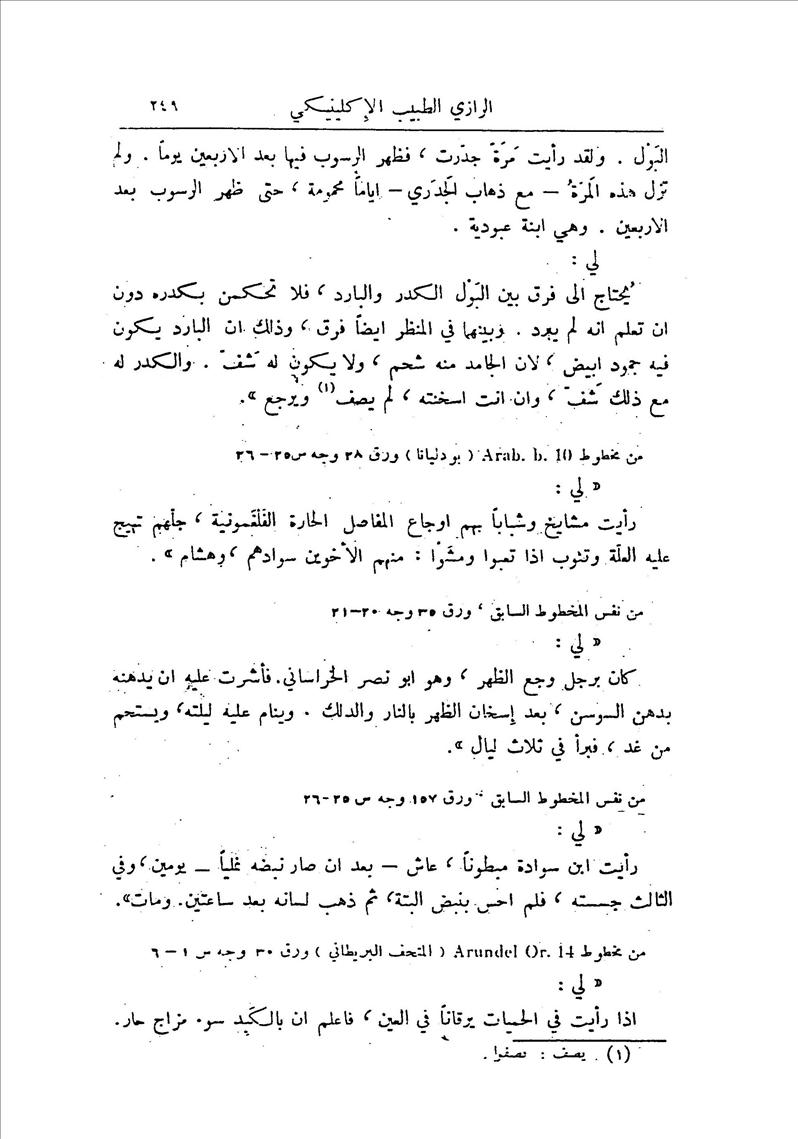 الرازي الطبيب الإكلينيكي ٢٤٩
البَوْل . ولقد رأيت مَرَةً جدّرت ، فظهر الرسوب فيها بعد الاربعين يوماً . ولم
تزل هذه المَرَةُ — مع ذهاب الجَدَري — اياماً محمومة ، حتى ظهر الرسوب بعد
الاربعين . وهي ابنة عبودية .
لي :
يُحتاج الى فرق بين البَوْل الكدر والبارد ، فلا تحكمن بكدره دون
ان تعلم انه لم يبرد . وبينهما في المنظر ايضاً فرق ، وذلك ان البارد يكون
فيه جمود ابيض ، لان الجامد منه شحم ، ولا يكون له شَفّ . والكدر له
مع ذلك شَفّ ، وان انت اسخنته ، لم يصف (١) ويُرجع ».
من مخطوط Arab. b. 10 ( بودليانا ) ورق ٣٨ وجه س ٢٥ – ٢٦
« لي :
رأيت مشايخ وشباباً بهم اوجاع المفاصل الحارة الفَلْغَمونية ، جلّهم تهيج
عليه العلّة وتنوب اذا تعبوا ومشَوْا : منهم الأخوين سوادهم ، وهشام » .
من نفس المخطوط السابق ، ورق ٣٥ وجه ٢٠–٢١
« لي :
كان برجل وجع الظهر ، وهو ابو نصر الخراساني. فأشرت عليه ان يدهنه
بدهن السوسن ، بعد إسخان الظهر بالنار والدلك . وينام عليه ليلته، ويستحم
من غد ، فبرأ في ثلاث ليال ».
من نفس المخطوط السابق ، ورق ١٥٧ وجه س ٢٥–٢٦
« لي :
رأيت ابن سوادة مبطوناً ، عاش — بعد ان صار نبضه نملياً — يومين ، وفي
الثالث جسسته ، فلم احس بنبض البتة، ثم ذهب لسانه بعد ساعتين. ومات».
من مخطوط Arundel Or. 14 ( المتحف البريطاني ) ورق ٣٠ وجه س ١ – ٦
« لي :
اذا رأيت في الحميات يرقاناً في العين ، فاعلم ان بالكَبِد سوء مزاج حار.
(١) يصف : تصفرا .